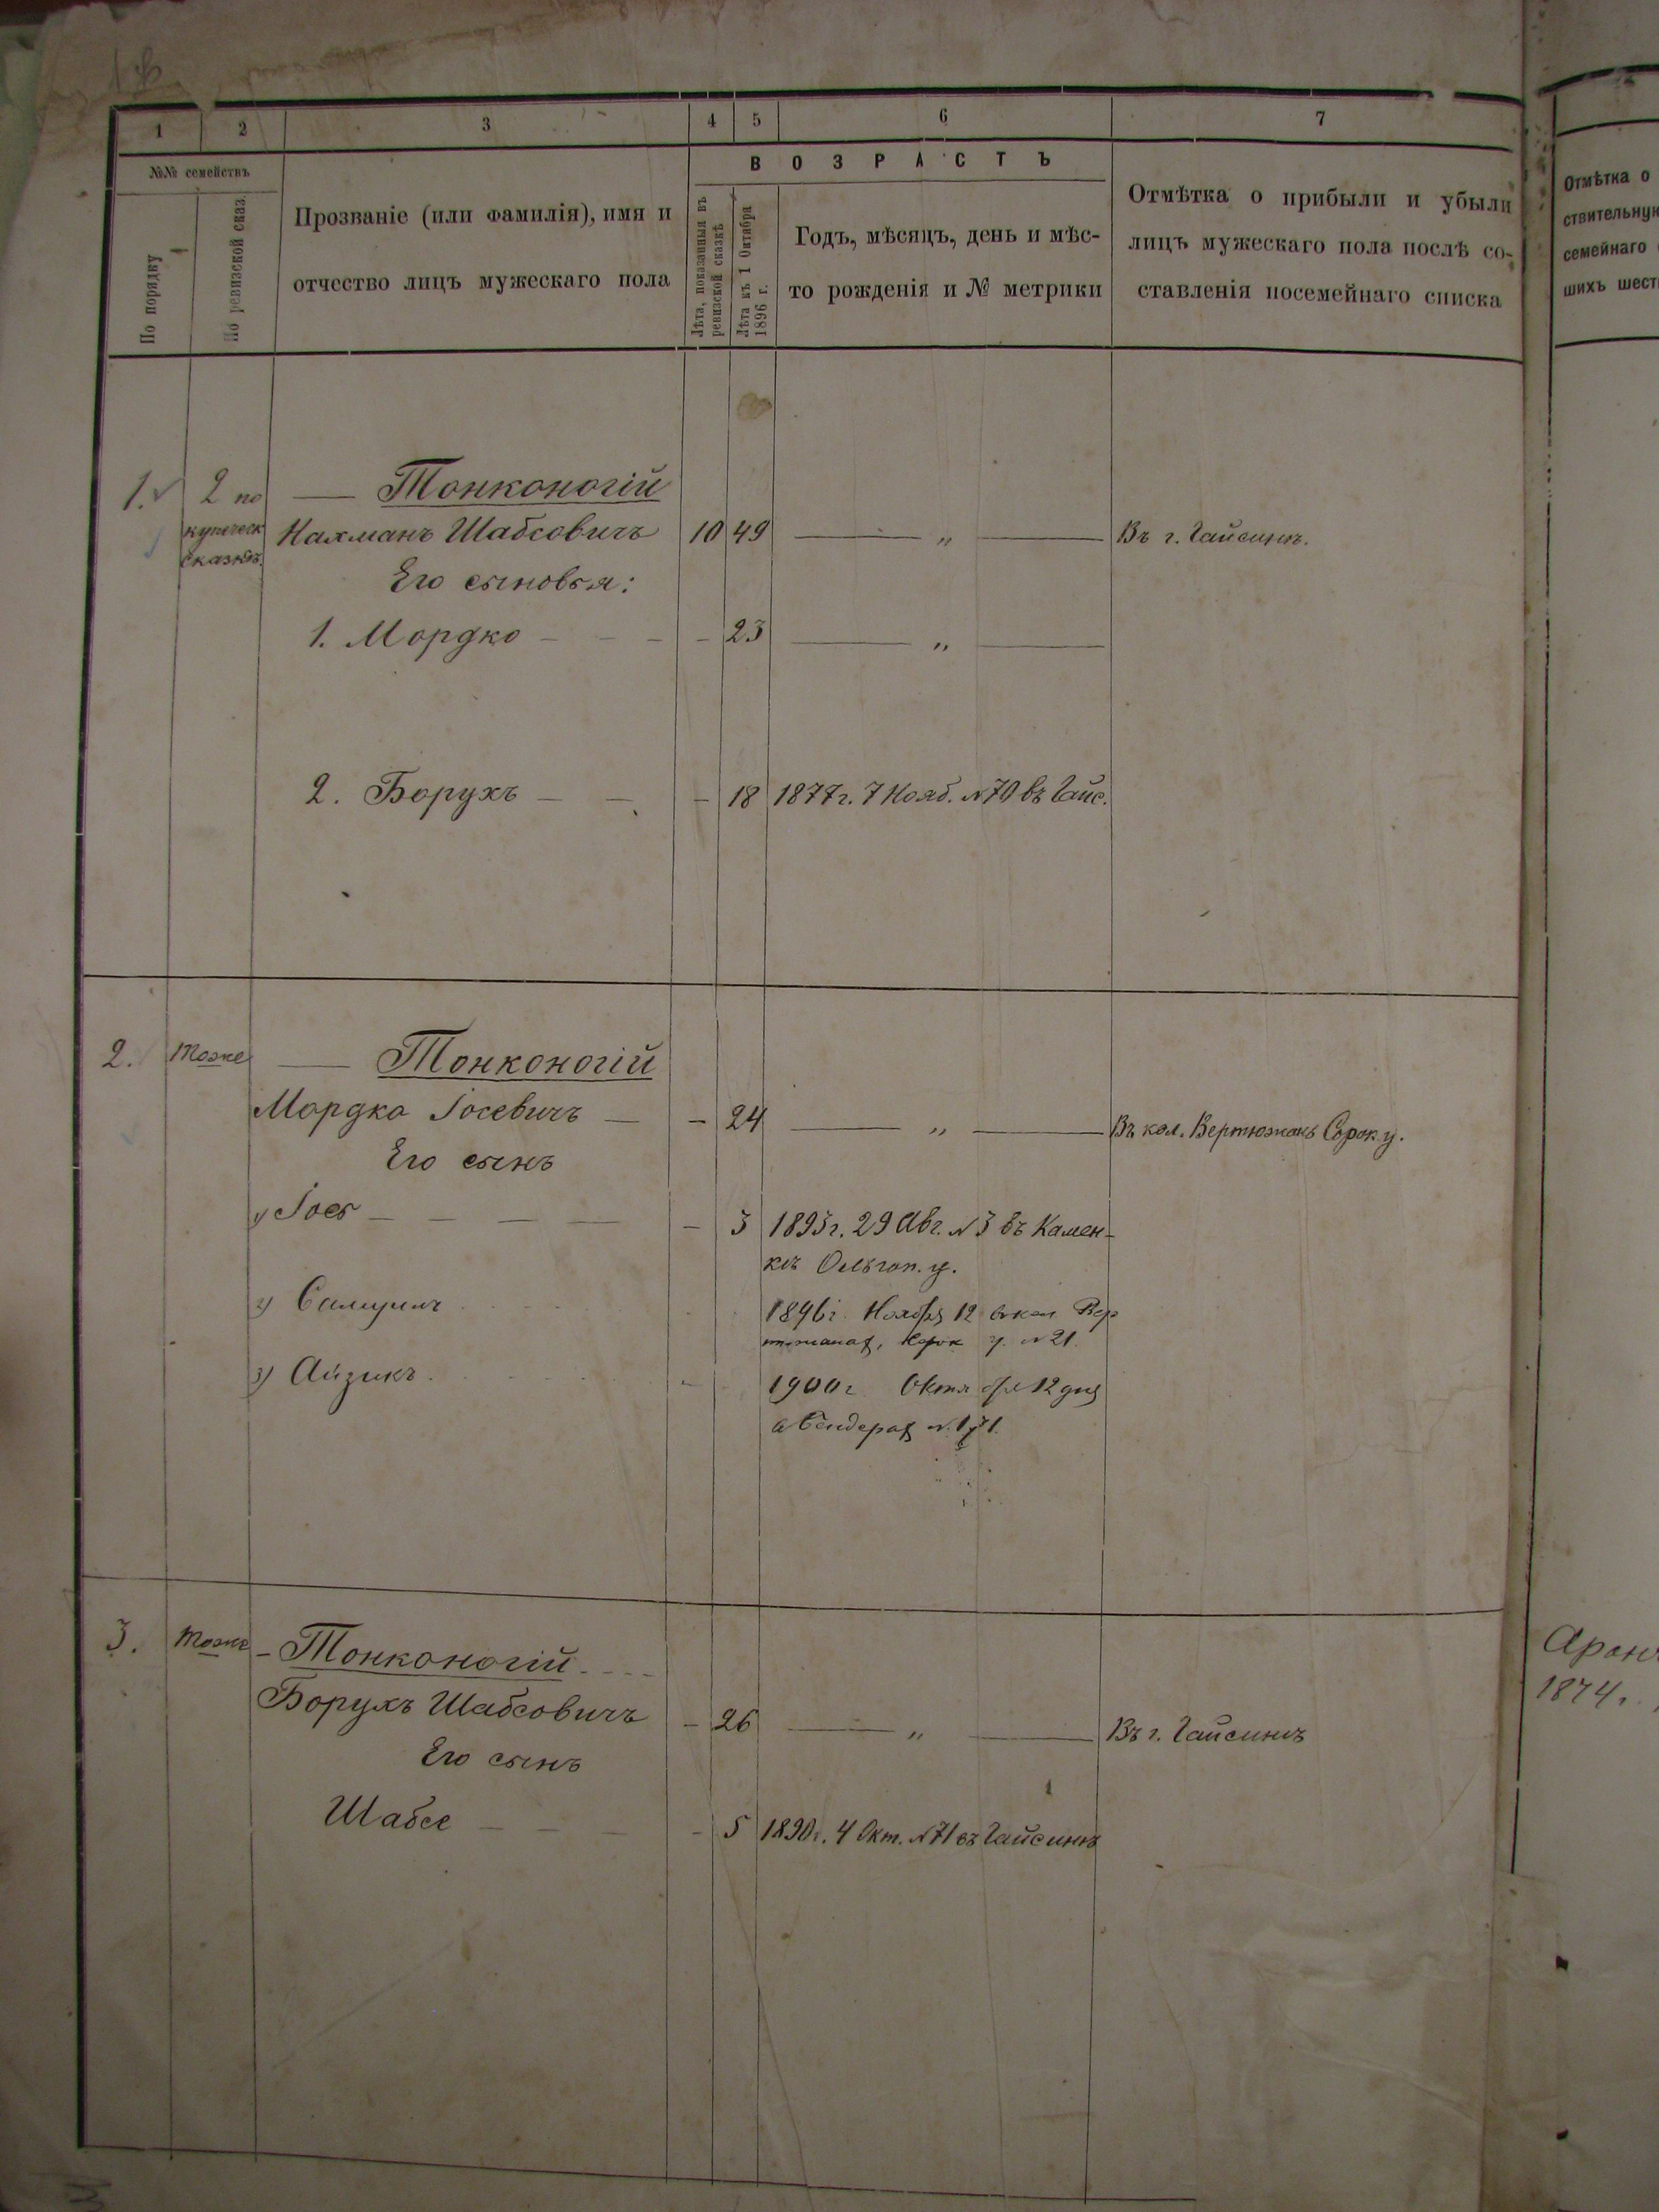 1 2 3 4 5 6 7
№№ семействъ
По порядку
По ревизской сказ.
Прозваніе (или фамилія), имя и
отчество лицъ мужескаго пола
ВОЗРАСТЪ
Лѣта, показанныя въ
ревизской сказкѣ
Лѣта къ 1 Октября
1896 г.
Годъ, мѣсяцъ, день и мѣс-
то рожденія и № метрики
Отмѣтка о прибыли и убыли
лицъ мужескаго пола послѣ со-
ставленія посемейнаго списка
Отмѣтка о
ствительную
семейнаго
шихъ шест
1. 2 по — Тонконогій
купеческ Нахманъ Шабсовичъ 10 49 — „ — Въ г. Гайсинѣ.
сказкѣ.
Его сыновья:
1. Мордко - - - - 23 — „ —
2. Борухъ — — - 18 1877 г. 7 Нояб. №70 въ Гайс.
2. Тоже — Тонконогій
Мордко Іосевичъ — - 24 — „ — Въ кол. Вертюжанъ Сорок. у.
Его сынъ
1) Іось — — — — - 3 1893 г. 29 Авг. №3 въ Камен-
кѣ Ольгоп. у.
2) Самуилъ 1896 г. Ноября 12 в кол Вер
тюжанах, Сорок у. №21.
3) Айзикъ. 1900 г. Октября 12 дня
в Бендерах №171.
3. Тоже - Тонконогій - - - -
Борухъ Шабсовичъ - 26 — „ — Въ г. Гайсинѣ
Его сынъ
Шабсе — — — - 5 1890 г. 4 Окт. №71 въ Гайсинѣ
Арон
1874.